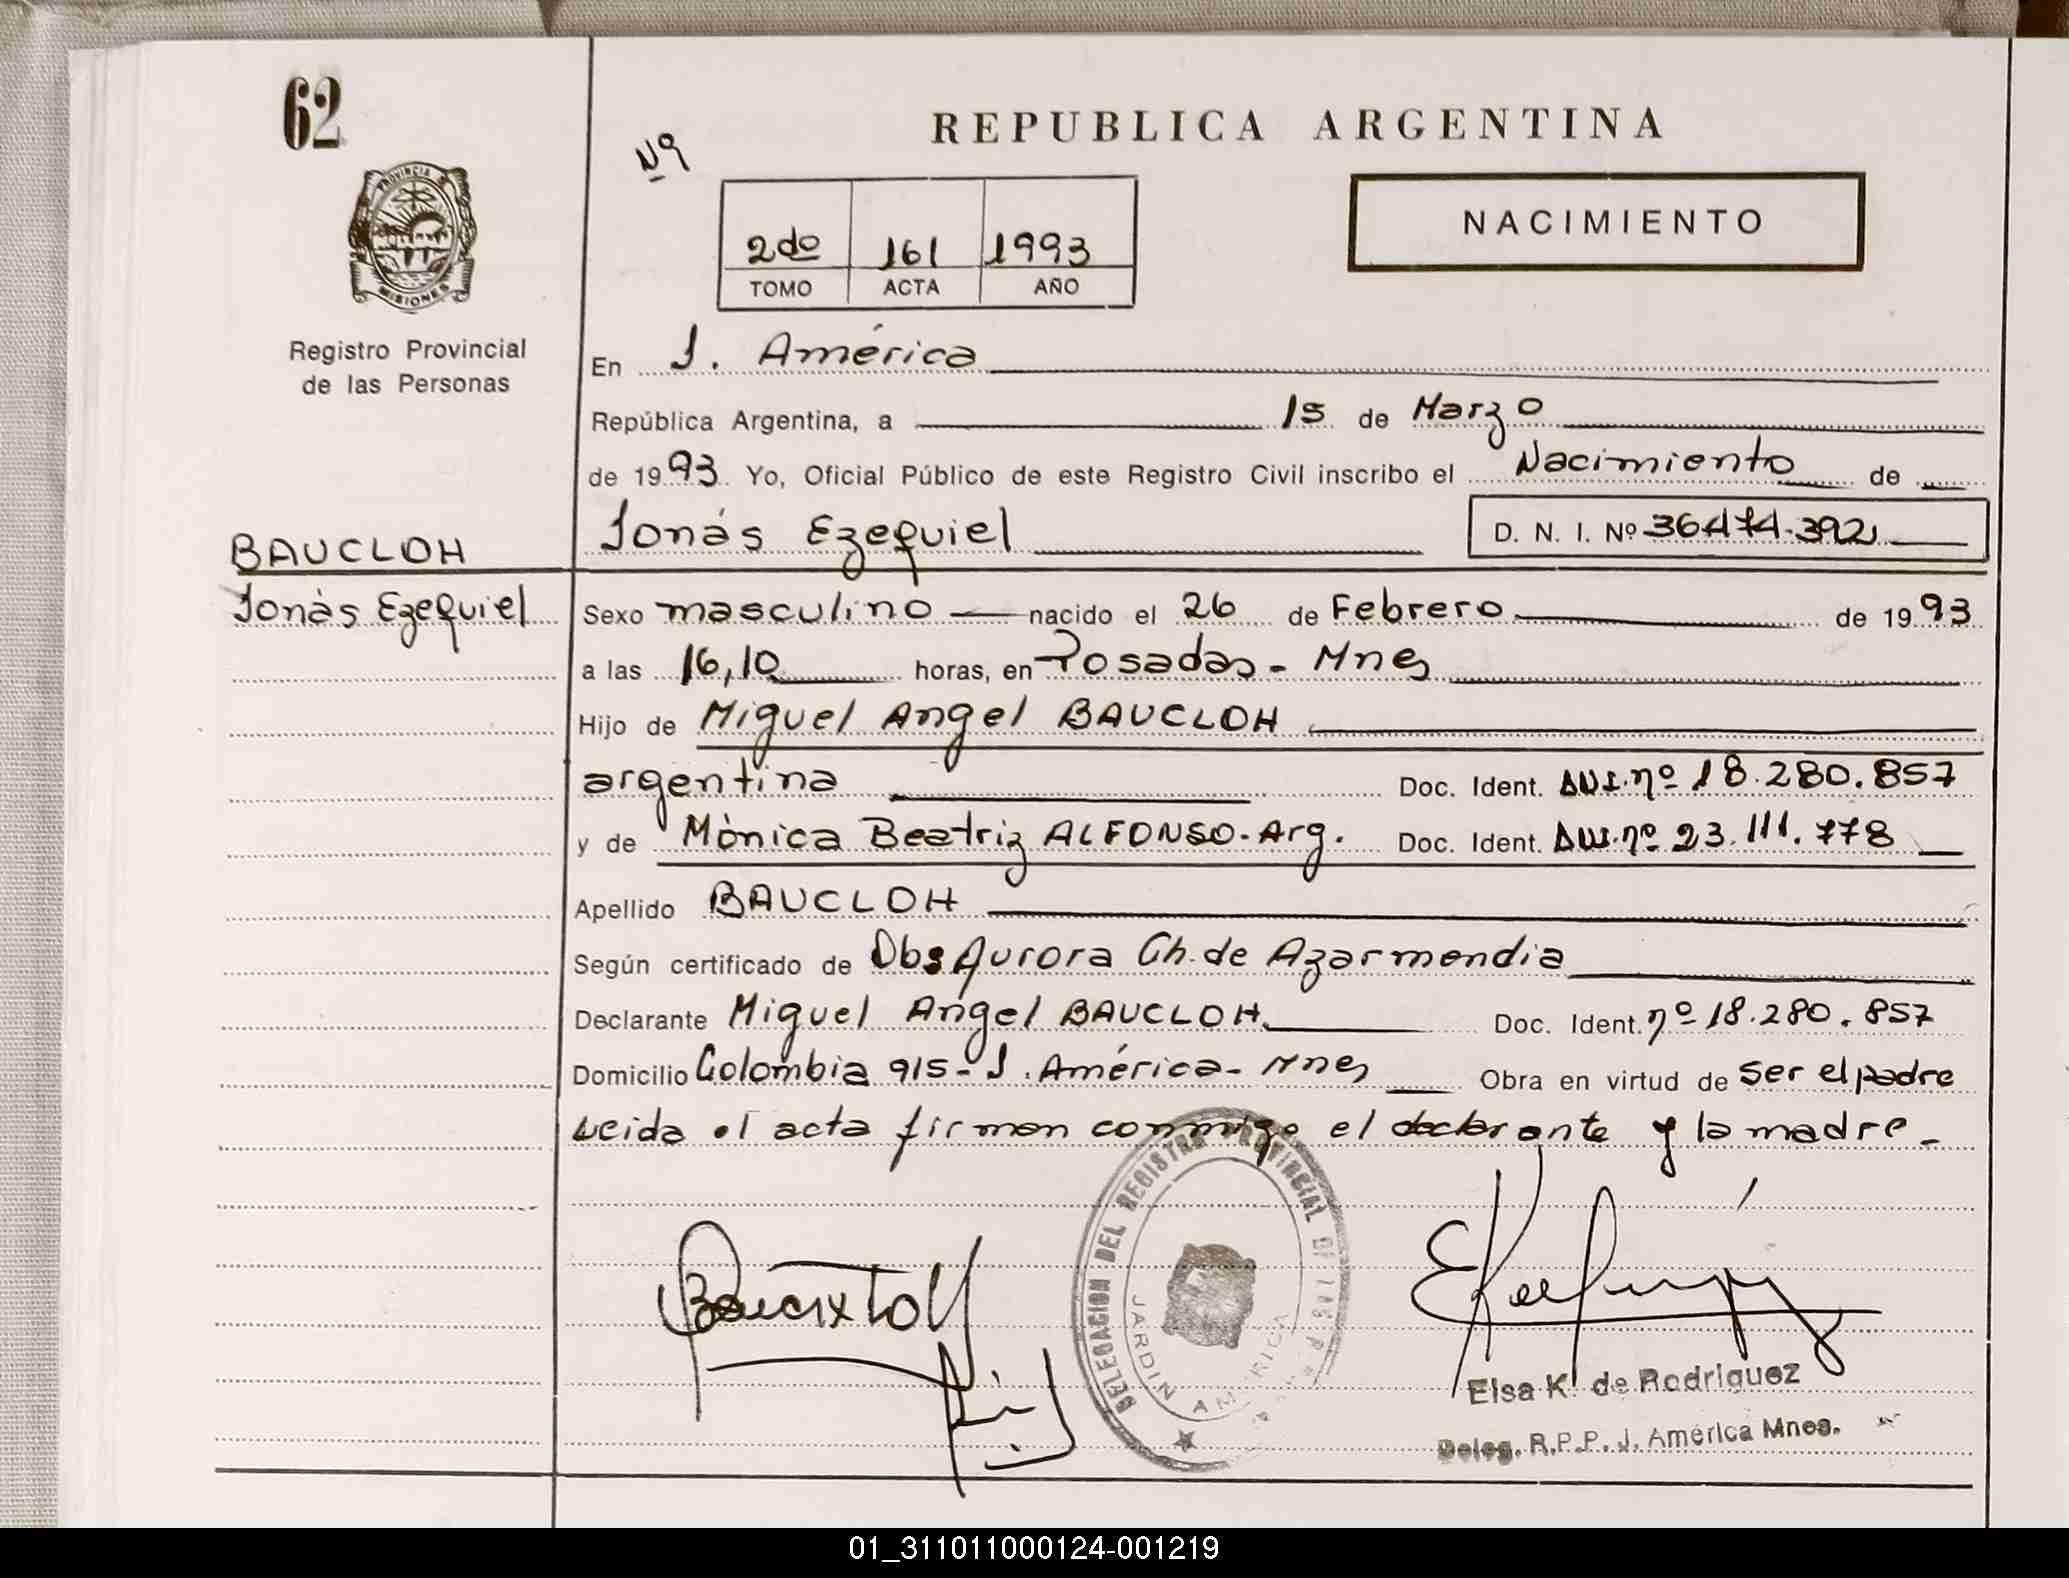 62
PROVINCIA
MISIONES
Registro Provincial
de las Personas
REPUBLICA ARGENTINA
Nº
2do 161 1993
TOMO ACTA AÑO
NACIMIENTO
En J. América
República Argentina, a 15 de Marzo
de 1993 Yo, Oficial Público de este Registro Civil inscribo el Nacimiento de
Jonás Ezequiel D. N. I. Nº 36.474.392
BAUCLOH
Jonás Ezequiel
Sexo masculino nacido el 26 de Febrero de 1993
a las 16,10 horas, en Posadas - Mnes
Hijo de Miguel Angel BAUCLOH
argentina Doc. Ident. DNI. nº 18.280.857
y de Mónica Beatriz ALFONSO - Arg. Doc. Ident. DNI. nº 23.111.778
Apellido BAUCLOH
Según certificado de Obs Aurora Ch. de Azarmendia
Declarante Miguel Angel BAUCLOH Doc. Ident. nº 18.280.857
Domicilio Colombia 915 - J. América - Mnes Obra en virtud de ser el padre
Leida el acta firman conmigo el declarante y la madre.
DELEGACION DEL REGISTRO PROVINCIAL DE LAS
JARDIN AMERICA
Elsa K. de Rodriguez
Deleg. R.P.P. J. América Mnes.
01_311011000124-001219